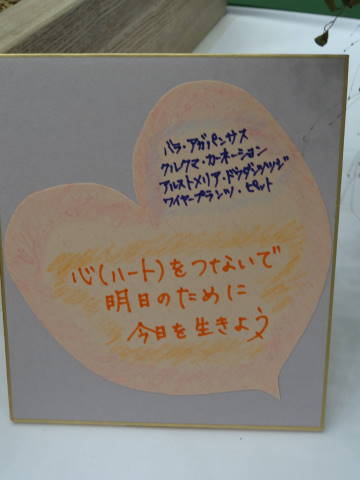 バラ・アガパンサス
クルクマ・カーネーション
アルストメリア・ドウダンツツジ
ワイヤープランツ・ピット
心(ハート)をつないで
明日のために
今日を生きよう